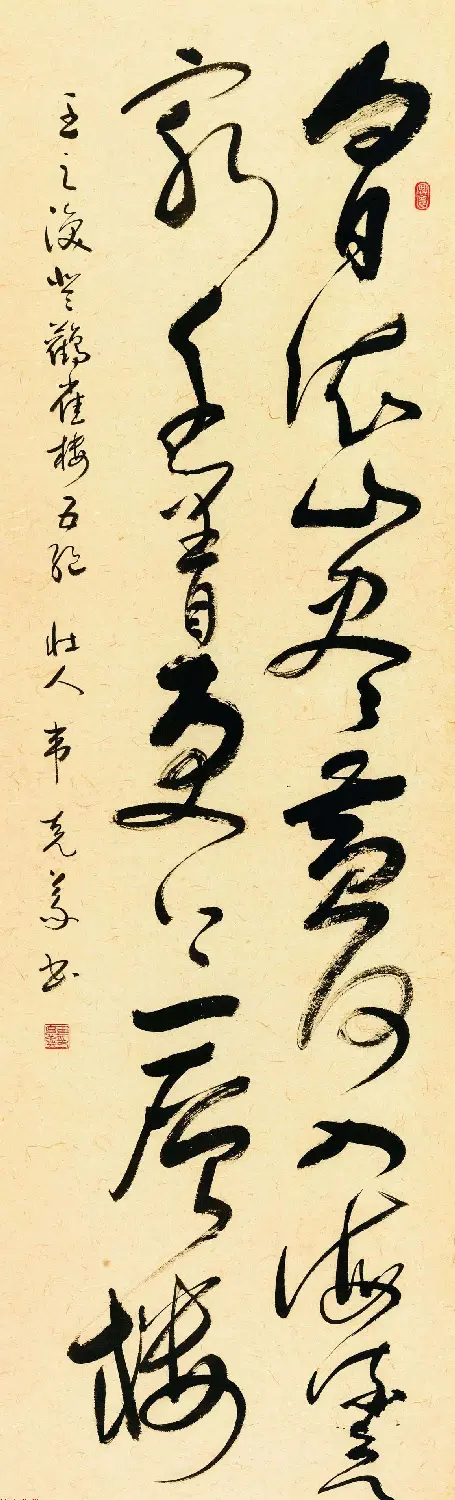 白日依山尽黄河入海流欲
穷千里目更上一层楼
王之涣登鹳雀楼五绝 壮人 韦克义书